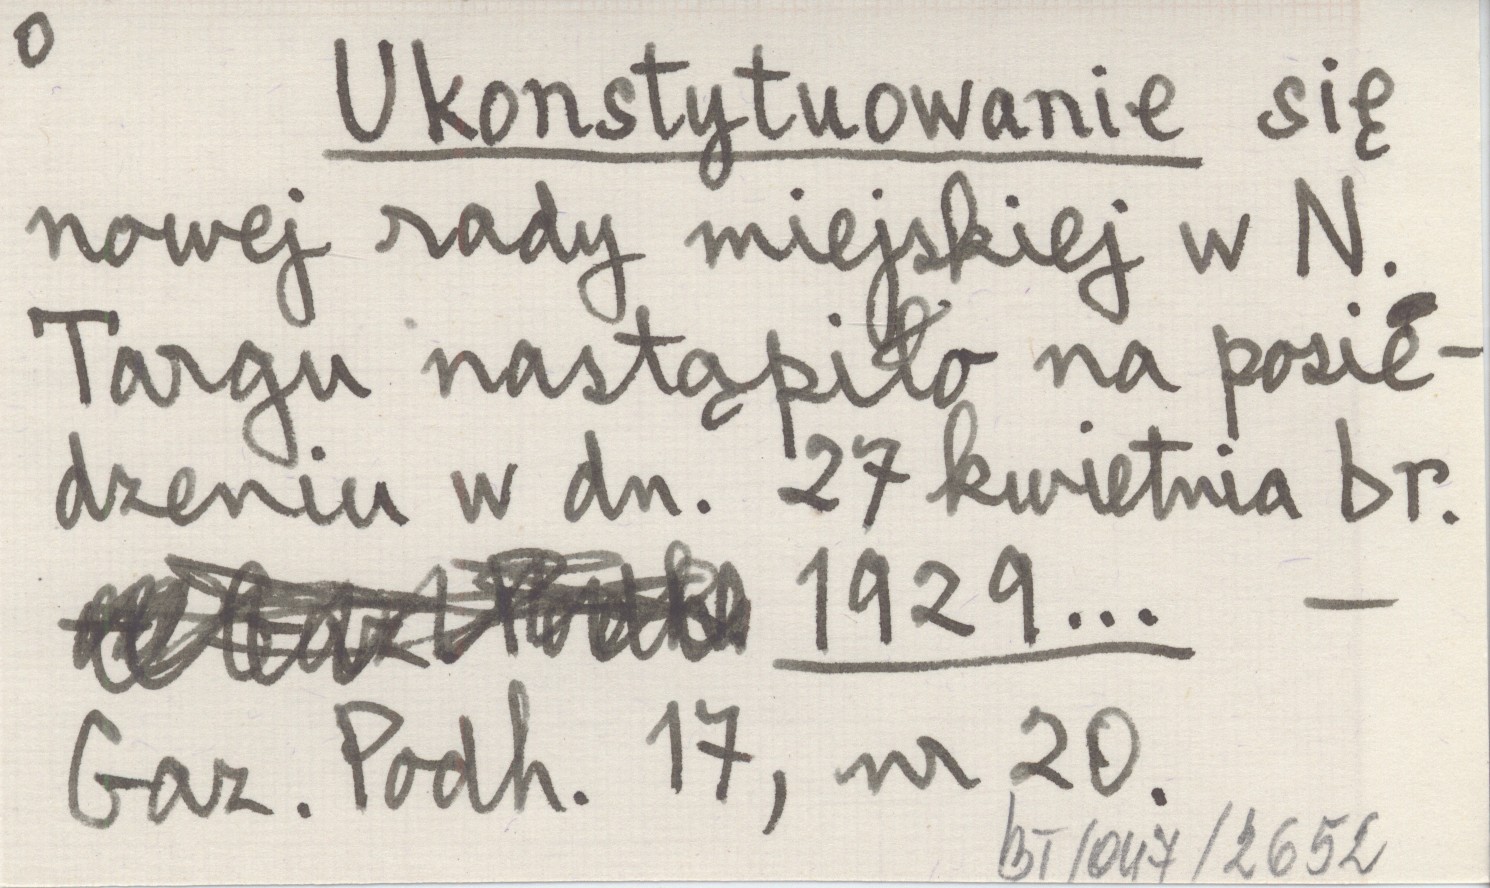 o
Ukonstytuowanie się
nowej rady miejskiej w N.
Targu nastąpiło na posie-
dzeniu w dn. 27 kwietnia br.
1929... —
Gaz. Podh. 17, nr 20.
BT/047/2652